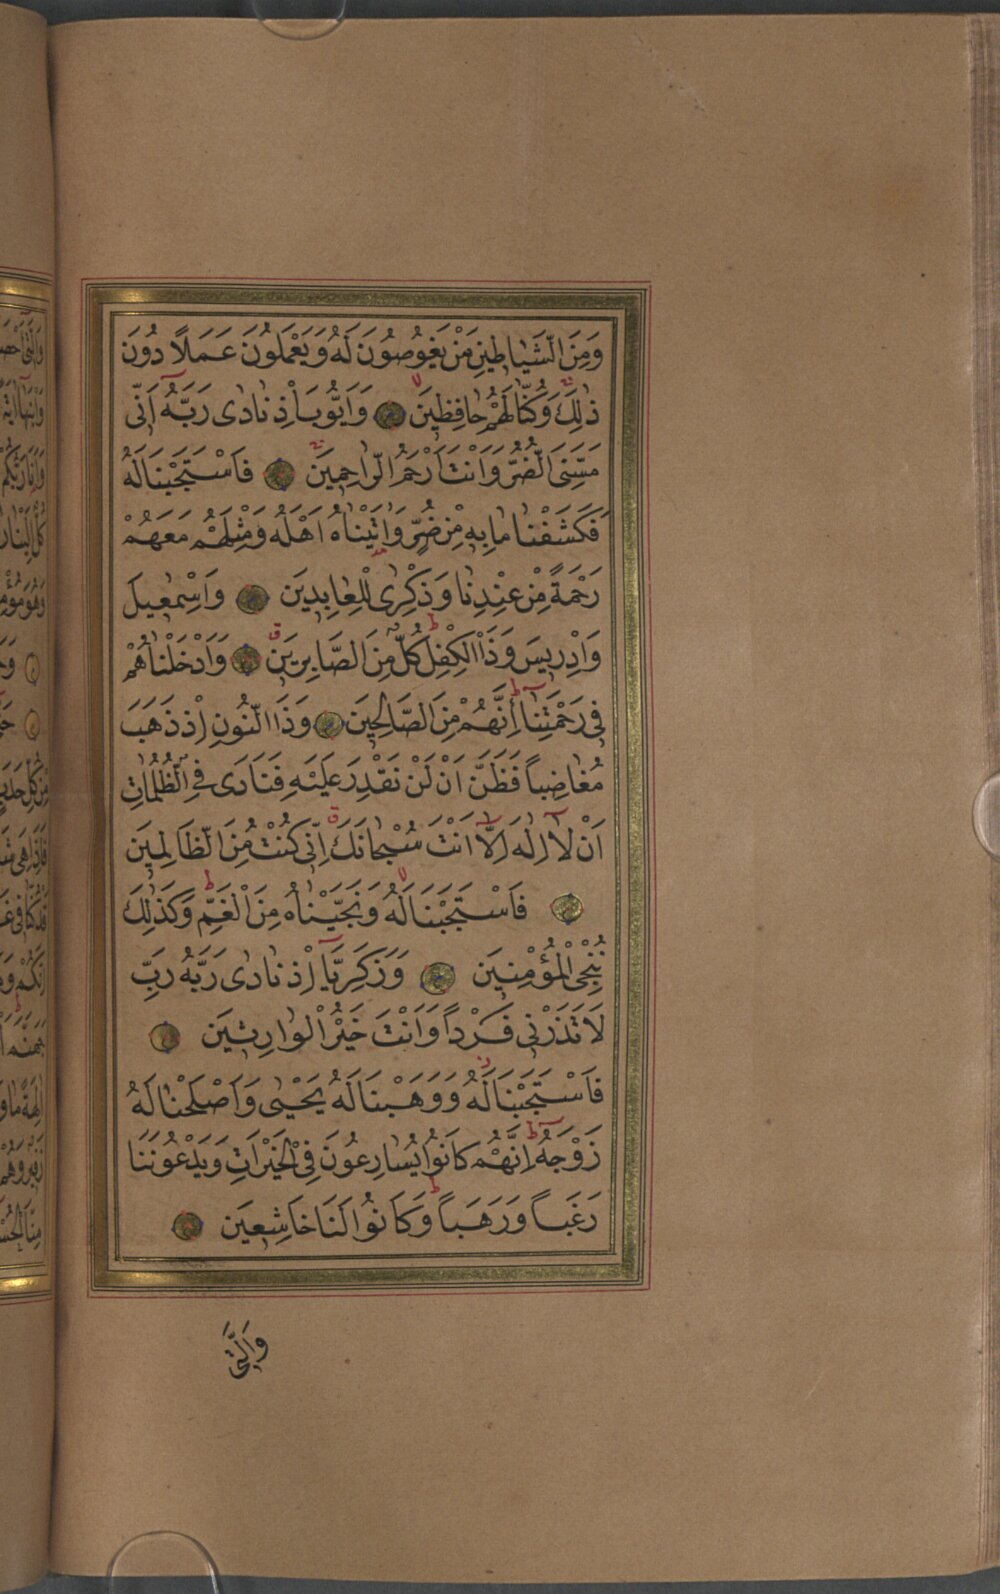 وَمِنَ الشَّيَاطِينِ مَنْ يَغُوصُونَ لَهُ وَيَعْمَلُونَ عَمَلًا دُونَ
ذٰلِكَ وَكُنَّا لَهُمْ حَافِظِينَ وَاَيُّوبَ اِذْ نَادٰى رَبَّهُٓ اَنّٖى
مَسَّنِىَ الضُّرُّ وَاَنْتَ اَرْحَمُ الرَّاحِمِينَ فَاسْتَجَبْنَا لَهُ
فَكَشَفْنَا مَا بِهٖ مِنْ ضُرٍّ وَاٰتَيْنَاهُ اَهْلَهُ وَمِثْلَهُمْ مَعَهُمْ
رَحْمَةً مِنْ عِنْدِنَا وَذِكْرٰى لِلْعَابِدِينَ وَاِسْمٰعِيلَ
وَاِدْرِيسَ وَذَا الْكِفْلِ كُلٌّ مِنَ الصَّابِرِينَ وَاَدْخَلْنَاهُمْ
فِى رَحْمَتِنَا اِنَّهُمْ مِنَ الصَّالِحِينَ وَذَا النُّونِ اِذْ ذَهَبَ
مُغَاضِباً فَظَنَّ اَنْ لَنْ نَقْدِرَ عَلَيْهِ فَنَادٰى فِى الظُّلُمَاتِ
اَنْ لَٓا اِلٰهَ اِلَّٓا اَنْتَ سُبْحَانَكَ اِنّٖى كُنْتُ مِنَ الظَّالِمِينَ
فَاسْتَجَبْنَا لَهُ وَنَجَّيْنَاهُ مِنَ الْغَمِّ وَكَذٰلِكَ
نُنْجِى الْمُؤْمِنِينَ وَزَكَرِيَّٓا اِذْ نَادٰى رَبَّهُ رَبِّ
لَا تَذَرْنٖى فَرْداً وَاَنْتَ خَيْرُ الْوَارِثِينَ
فَاسْتَجَبْنَا لَهُ وَوَهَبْنَا لَهُ يَحْيٰى وَاَصْلَحْنَا لَهُ
زَوْجَهُ اِنَّهُمْ كَانُوا يُسَارِعُونَ فِى الْخَيْرَاتِ وَيَدْعُونَنَا
رَغَباً وَرَهَباً وَكَانُوا لَنَا خَاشِعِينَ
وَالَّتٖى